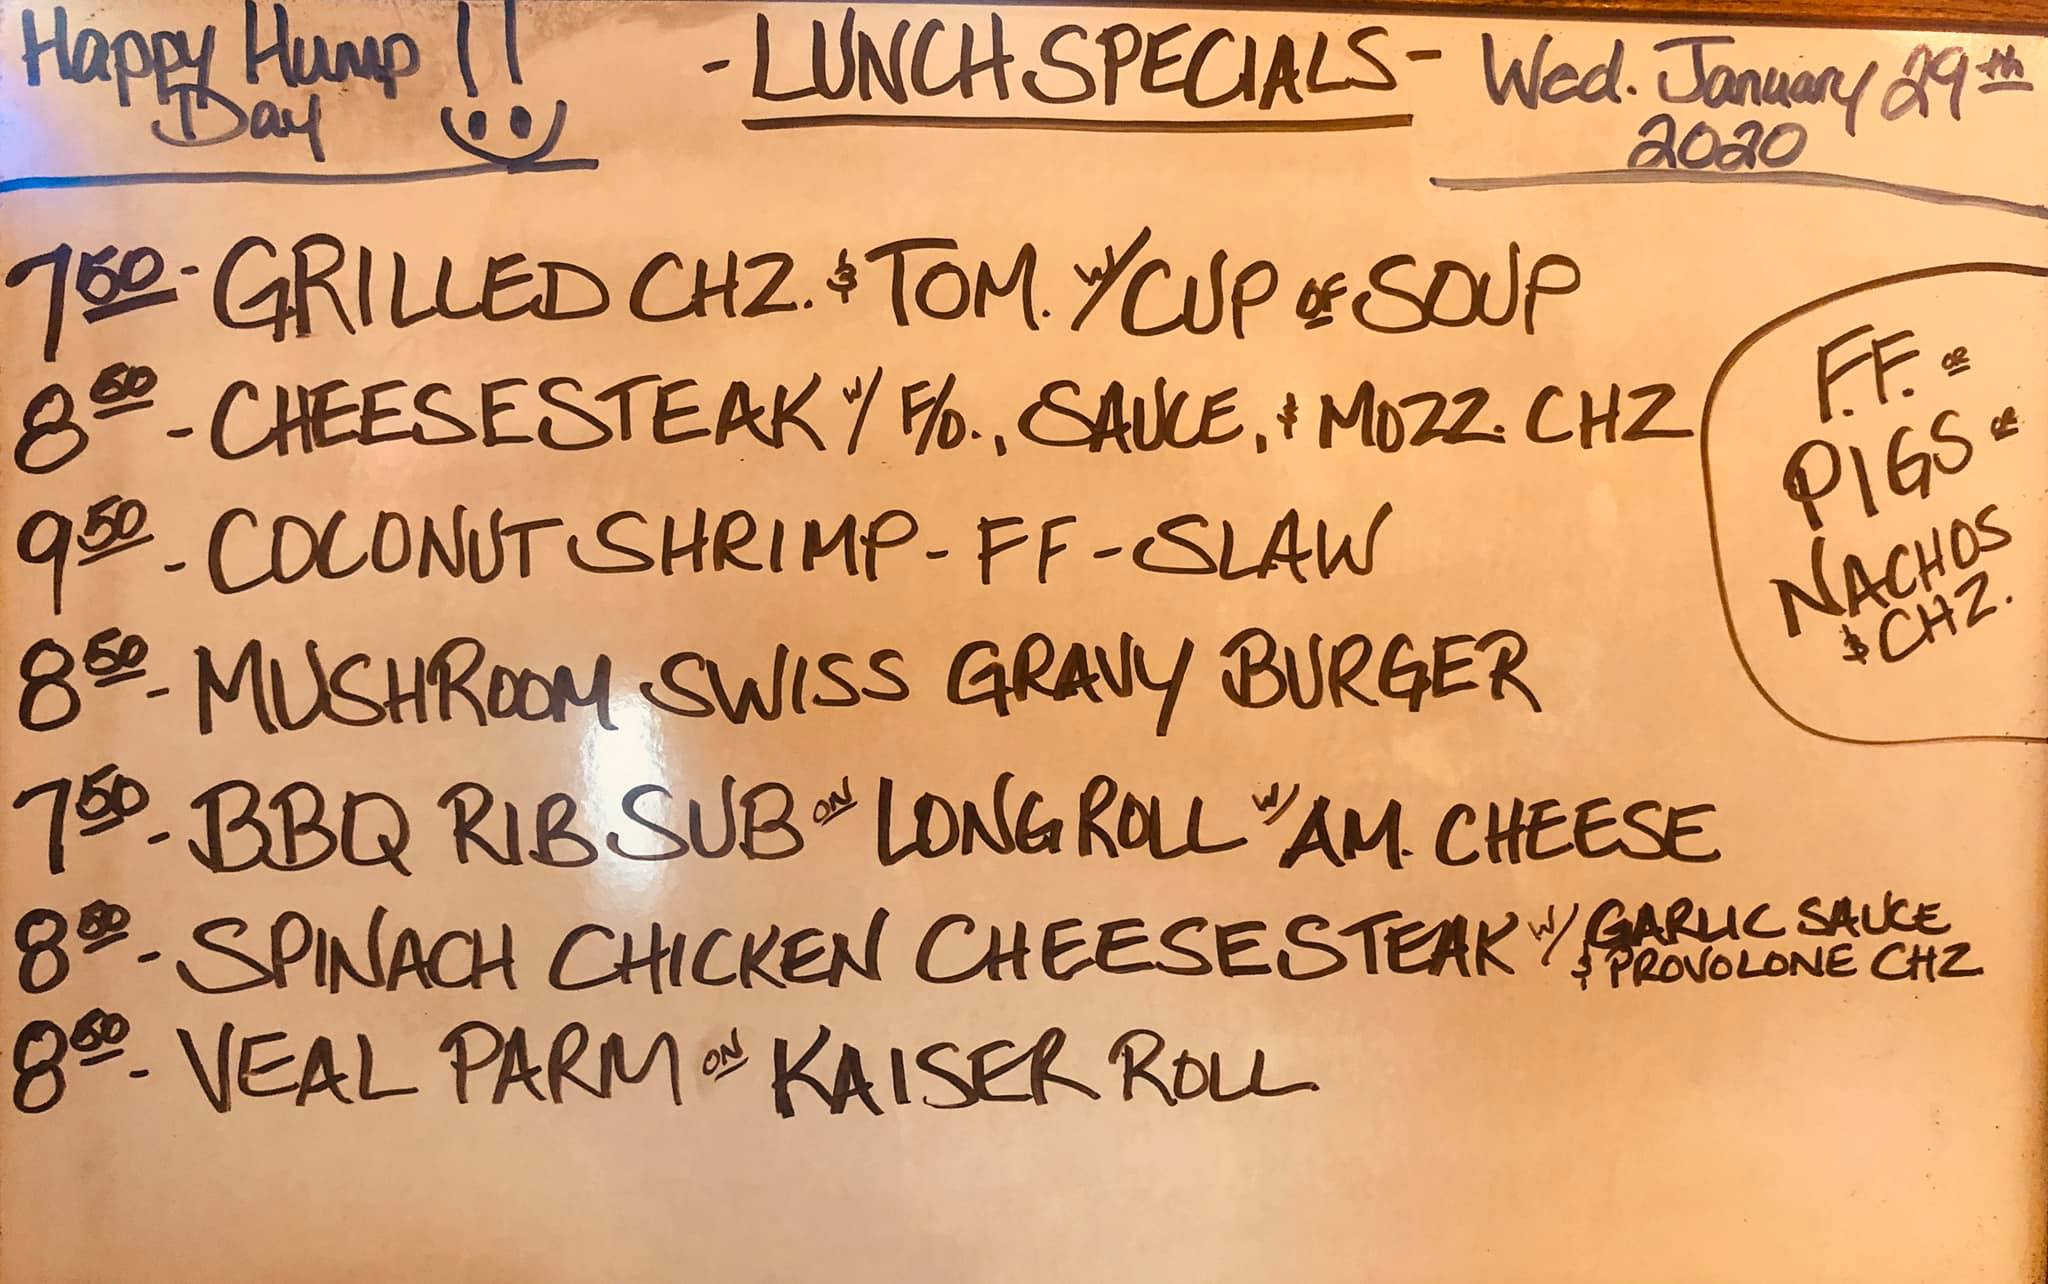 Happy Hump !!
Day
- LUNCH SPECIALS -
Wed. January 29th
2020
7 50 - GRILLED CHZ. & TOM. w/ CUP OF SOUP
8 50 - CHEESESTEAK w/ F/O., SAUCE, & MOZZ. CHZ
9 50 - COCONUT SHRIMP - FF - SLAW
8 50 - MUSHROOM SWISS GRAVY BURGER
7 50 - BBQ RIB SUB ON LONG ROLL w/ AM. CHEESE
8 50 - SPINACH CHICKEN CHEESESTEAK w/ GARLIC SAUCE
& PROVOLONE CHZ
8 50 - VEAL PARM ON KAISER ROLL
F.F. OR
PIGS OR
NACHOS
& CHZ.